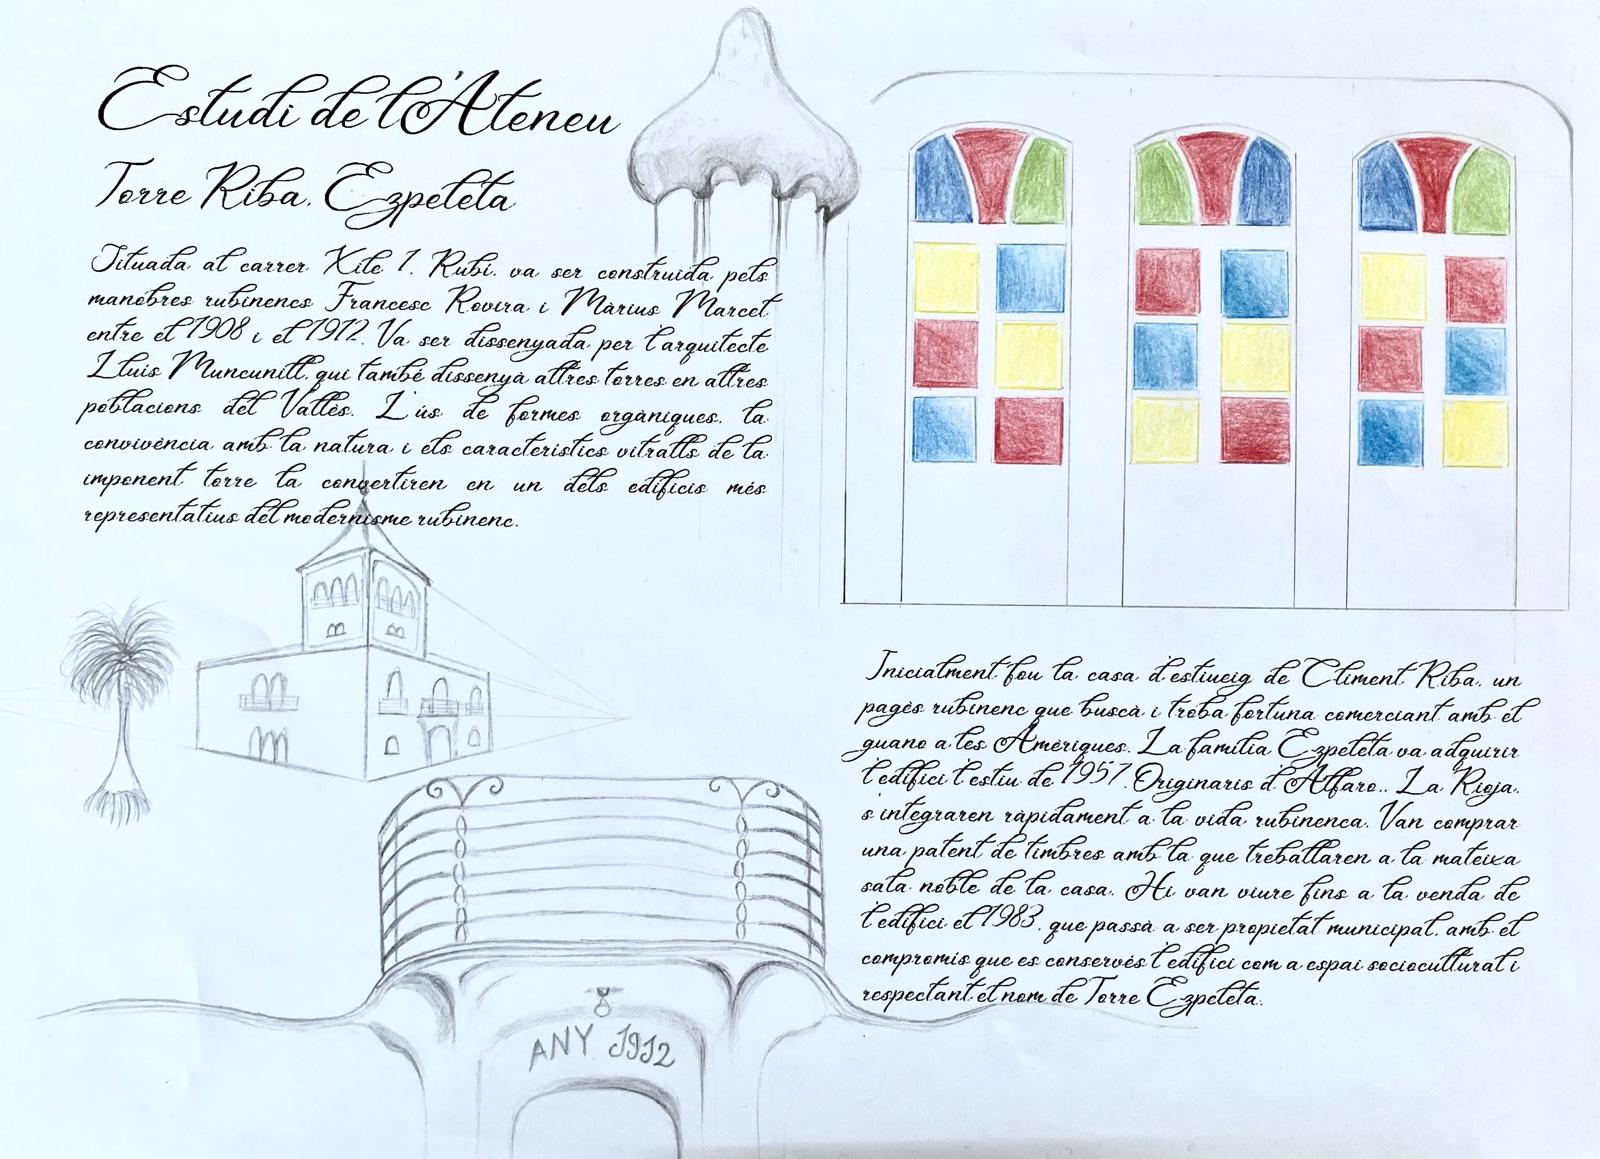 Estudi de l'Ateneu
Torre Riba, Ezpeleta
Situada al carrer Xile 1, Rubí, va ser construïda pels
manobres rubinencs Francesc Rovira i Màrius Marcet
entre el 1908 i el 1912. Va ser dissenyada per l'arquitecte
Lluís Muncunill, qui també dissenyà altres torres en altres
poblacions del Vallès. L'ús de formes orgàniques, la
convivència amb la natura i els característics vitralls de la
imponent torre la convertiren en un dels edificis més
representatius del modernisme rubinenc.
Inicialment fou la casa d'estiueig de Climent Riba, un
pagès rubinenc que buscà i troba fortuna comerciant amb el
guano a les Amèriques. La família Ezpeleta va adquirir
l'edifici l'estiu de 1957. Originaris d'Alfaro,, La Rioja,
s'integraren ràpidament a la vida rubinenca. Van comprar
una patent de timbres amb la que treballaren a la mateixa
sala noble de la casa. Hi van viure fins a la venda de
l'edifici el 1983, que passà a ser propietat municipal, amb el
compromís que es conservés l'edifici com a espai sociocultural i
respectant el nom de Torre Ezpeleta.
ANY 1912